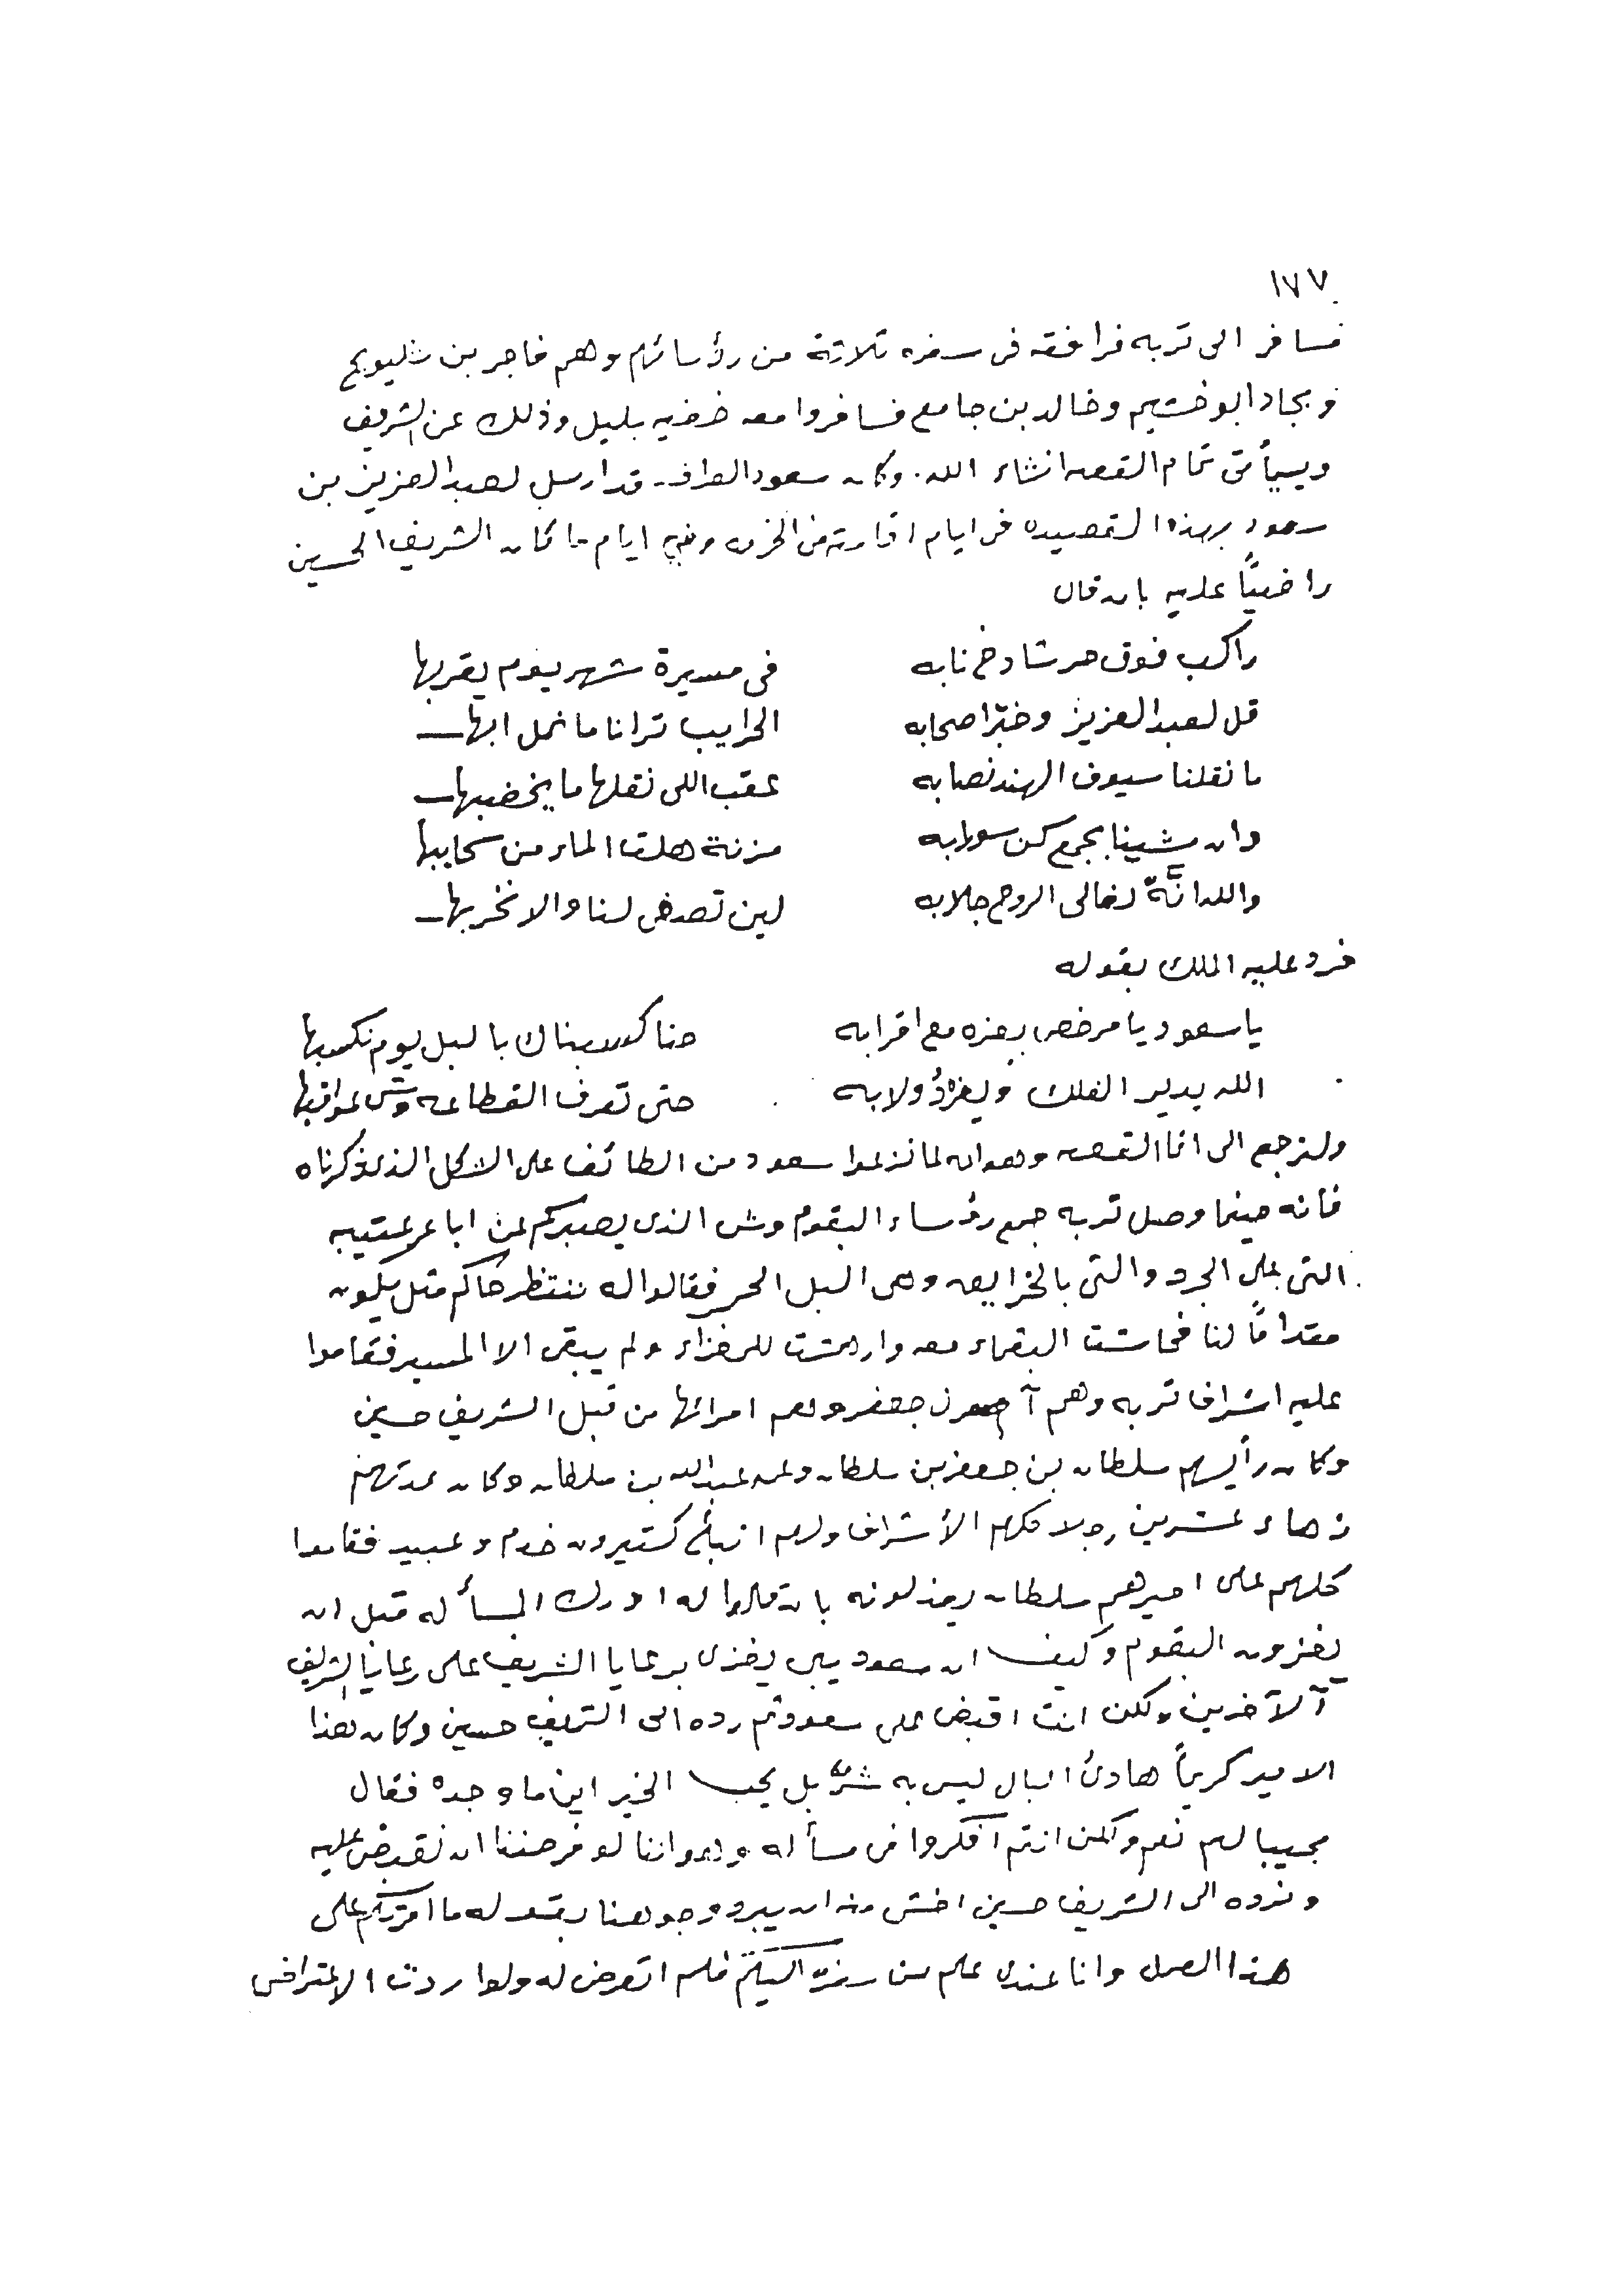 ١٧٧
فسافر الى تربه فرافقه في سفره ثلاثة من رؤسائهم وهم فاجر بن شليويح
وبجاد ابو خشيم وخالد بن جامع فسافروا معه خفيه بليل وذلك عن الشريف
وسيأتي تمام القصه انشاء الله. وكان سعود العرافه قد ارسل لعبد العزيز بن
سعود بهذه القصيده في ايام اقامته في الخرمه وفي ايام ما كان الشريف الحسين
راضيًا عليه بان قال
راكب فوق حر شادخ نابه في مسيرة شهر يوم يقربها
قل لعبد العزيز وخبّر اصحابه الحرايب ترانا ما نمل ابها
ما نقلنا سيوف الهند نصابه عقب اللي نقلها ما يخضبها
وان مشينا بجمع كن سحابه مزنة هلت الماء من سحايبها
والله انّه لغالى الروح جلابه لين تصفى لنا والا نخربها
فرد عليه الملك بقوله
يا سعود يا مرخص بعزه مع اقرابه حنا كسبناك بالبل يوم نكسبها
الله يدير الفلك ويفرُّ دولابه حتى تعرف القطاعه وش عواقبها
ولنرجع الى القصه وهو ان لما سعود من الطائف على الشكل الذي ذكرناه
فانه حينما وصل تربه جمع رؤساء البقوم وش الذي يصبركم عن اباعر عتيبه
التي على الجرد والتي بالخرايع وهي البل الحمر فقالوا له ننتظر حاكم مثلك يكون
مقدامًا لنا فحاشت البقماء معه وارهشت للغزاء ولم يبقى الا المسير فقاموا
عليه اشراف تربه وهم آ جعفر وهم امرائها من قبل الشريف حسين
وكان رأيسهم سلطان بن جعفر بن سلطان وعمه عبدالله بن سلطان وكان عدتهم
زهاء عشرين رجلا كلهم الأشراف ولهم اتباع كثيرون خدم وعبيد فقاموا
كلهم على اميرهم سلطان يعذلونه بان قالوا له ادرك المسأله قبل ان
يغزون البقوم وكيف ان سعود يبي يغزى برعايا الشريف على رعايا الشريف
آلآخرين ولكن انت اقبض على سعود ثم رده الى الشريف حسين وكان هذا
الامير كريمًا هادئ البال ليس به شرٌ بل يحب الخير اين ما وجده فقال
مجيبا لهم نعم ولكن انتم افكروا في مسأله وهو اننا لو فرضنا ان نقبض عليه
ونرده الى الشريف حسين اخشى منه ان يبرد وجوهنا بقوله ما امرتكم على
هذا العمل وانا عندى علم من سفره اليكم فلم اتعرض له ولو اردت الاعتراض